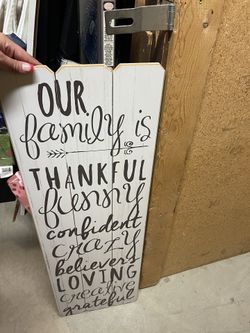 OUR
family is
THANKFUL
funny
confident
CRAZY
believers
LOVING
creative
grateful